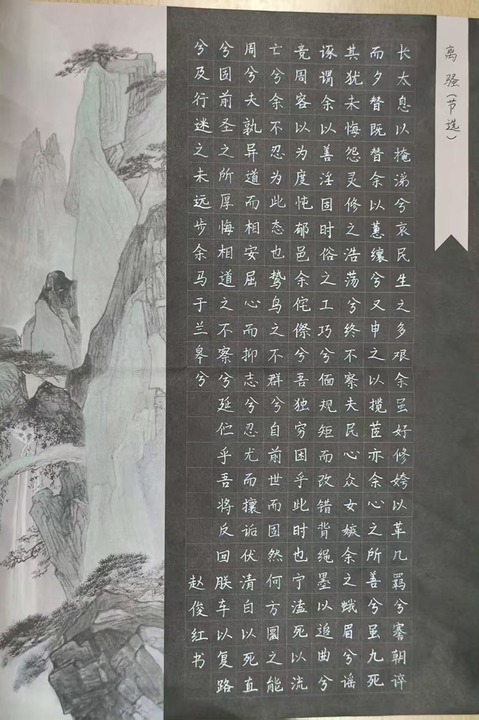 离骚（节选）
长太息以掩涕兮哀民生之多艰余虽好修姱以革几羁兮謇朝谇
而夕替既替余以蕙纕兮又申之以揽茝亦余心之所善兮虽九死
其犹未悔怨灵修之浩荡兮终不察夫民心众女嫉余之蛾眉兮谣
诼谓余以善淫固时俗之工巧兮偭规矩而改错背绳墨以追曲兮
竞周容以为度忳郁邑余侘傺兮吾独穷困乎此时也宁溘死以流
亡兮余不忍为此态也鸷鸟之不群兮自前世而固然何方圜之能
周兮夫孰异道而相安屈心而抑志兮忍尤而攘诟伏清白以死直
兮固前圣之所厚悔相道之不察兮延伫乎吾将反回朕车以复路
兮及行迷之未远步余马于兰皋兮 赵俊红书